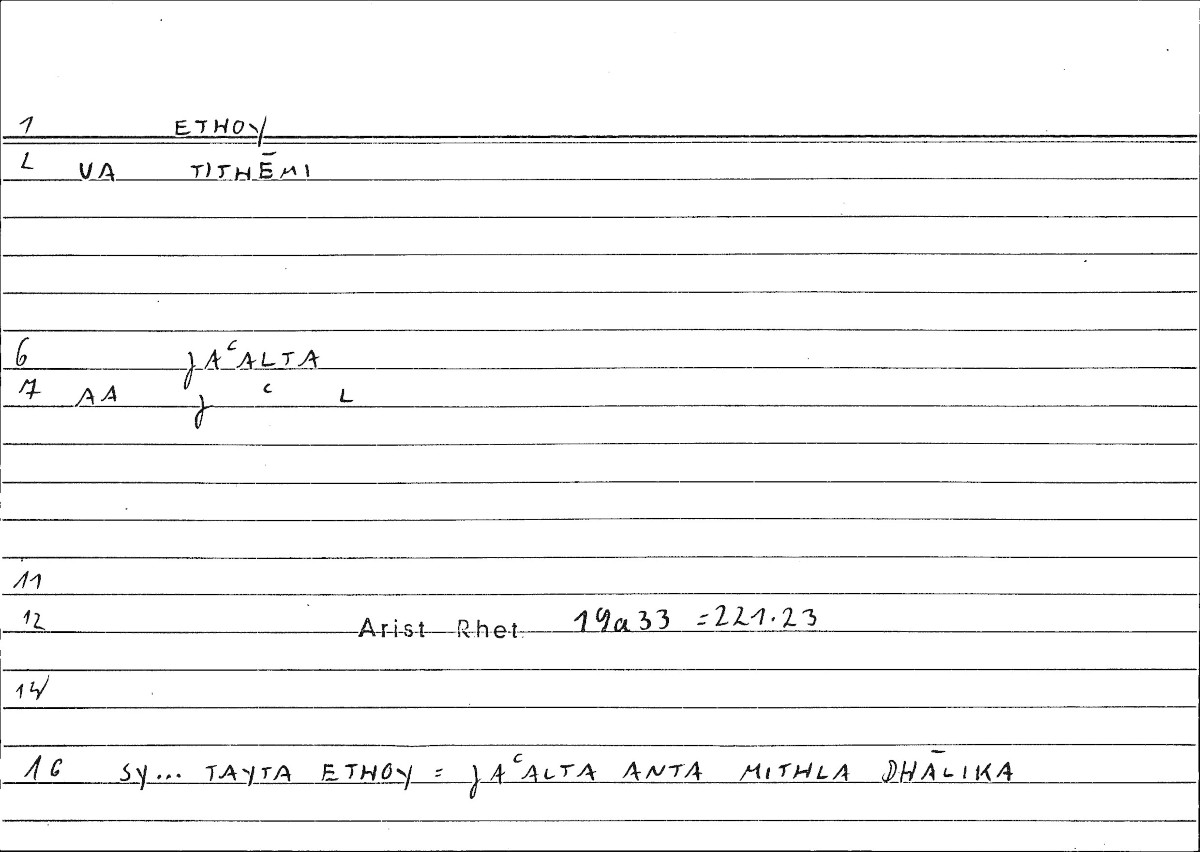 1 ETHOY
L VA TITHĒMI
6 ȷAʿALTA
7 AA ȷ ʿ L
11
12 Arist Rhet 19a33 =221.23
14
16 SY... TAYTA ETHOY = ȷAʿALTA ANTA MITHLA DHĀLIKA